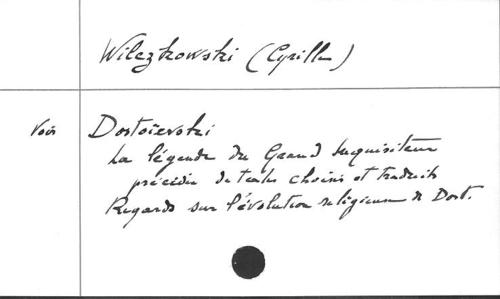 Wilczkowski (Cyrille)
Voir Dostoïevski
La légende du Grand Inquisiteur
précédée de textes choisis et traduits
Regards sur l'évolution religieuse de Dost.